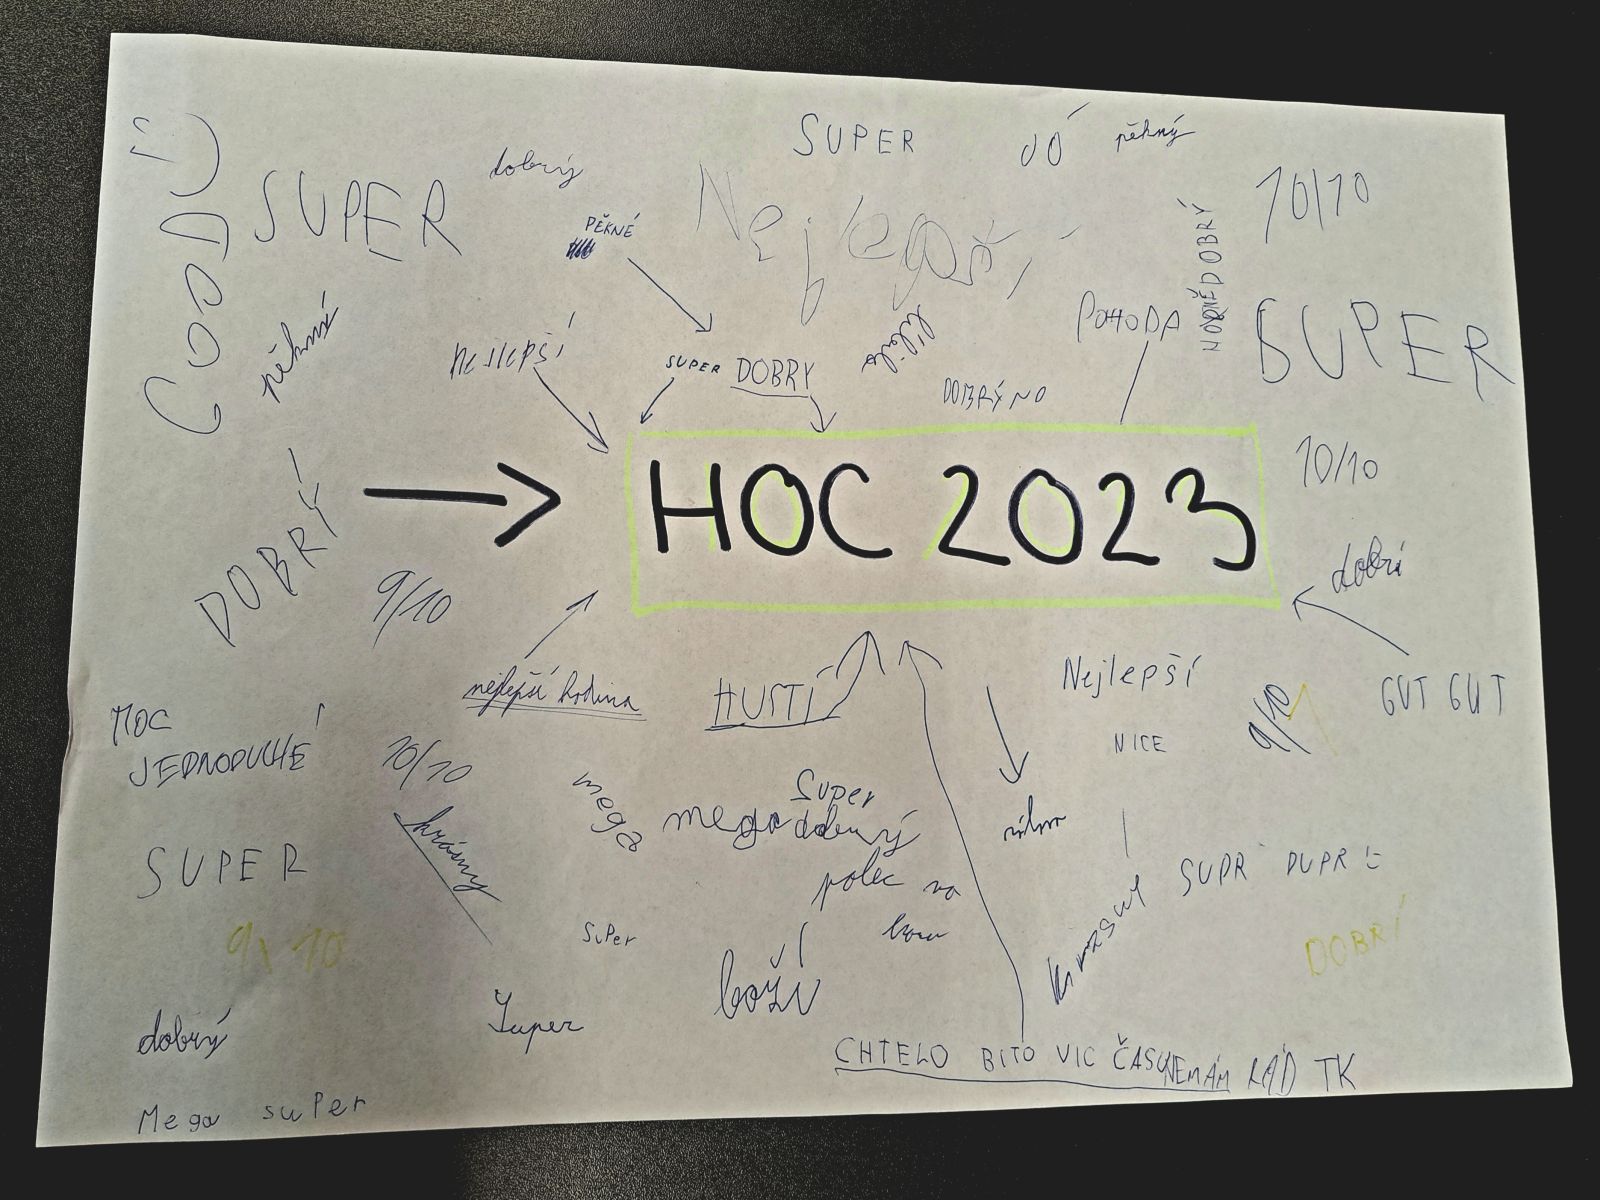 SUPER
JÓ
pěkný
dobrý
GOOD
SUPER
PĚKNÉ
Nejlepší
HODNĚ DOBRÝ
10/10
pěkné
nejlepší
SUPER
DOBRY
líbilo
DOBRÝ NO
POHODA
SUPER
DOBRÝ
HOC 2023
10/10
9/10
dobrí
nejlepší hodina
HUSTÍ
Nejlepší
GUT GUT
MOC
JEDNODUCHÉ
10/10
NICE
9/10
mega
Super
mega dobrý
krásný
SUPER
polec na
SUPR DUPR
9/10
SuPer
boží
krásný
DOBRÍ
dobrý
Super
CHTELO BITO VIC ČASU
NEMÁM RÁD TK
Mega suPer